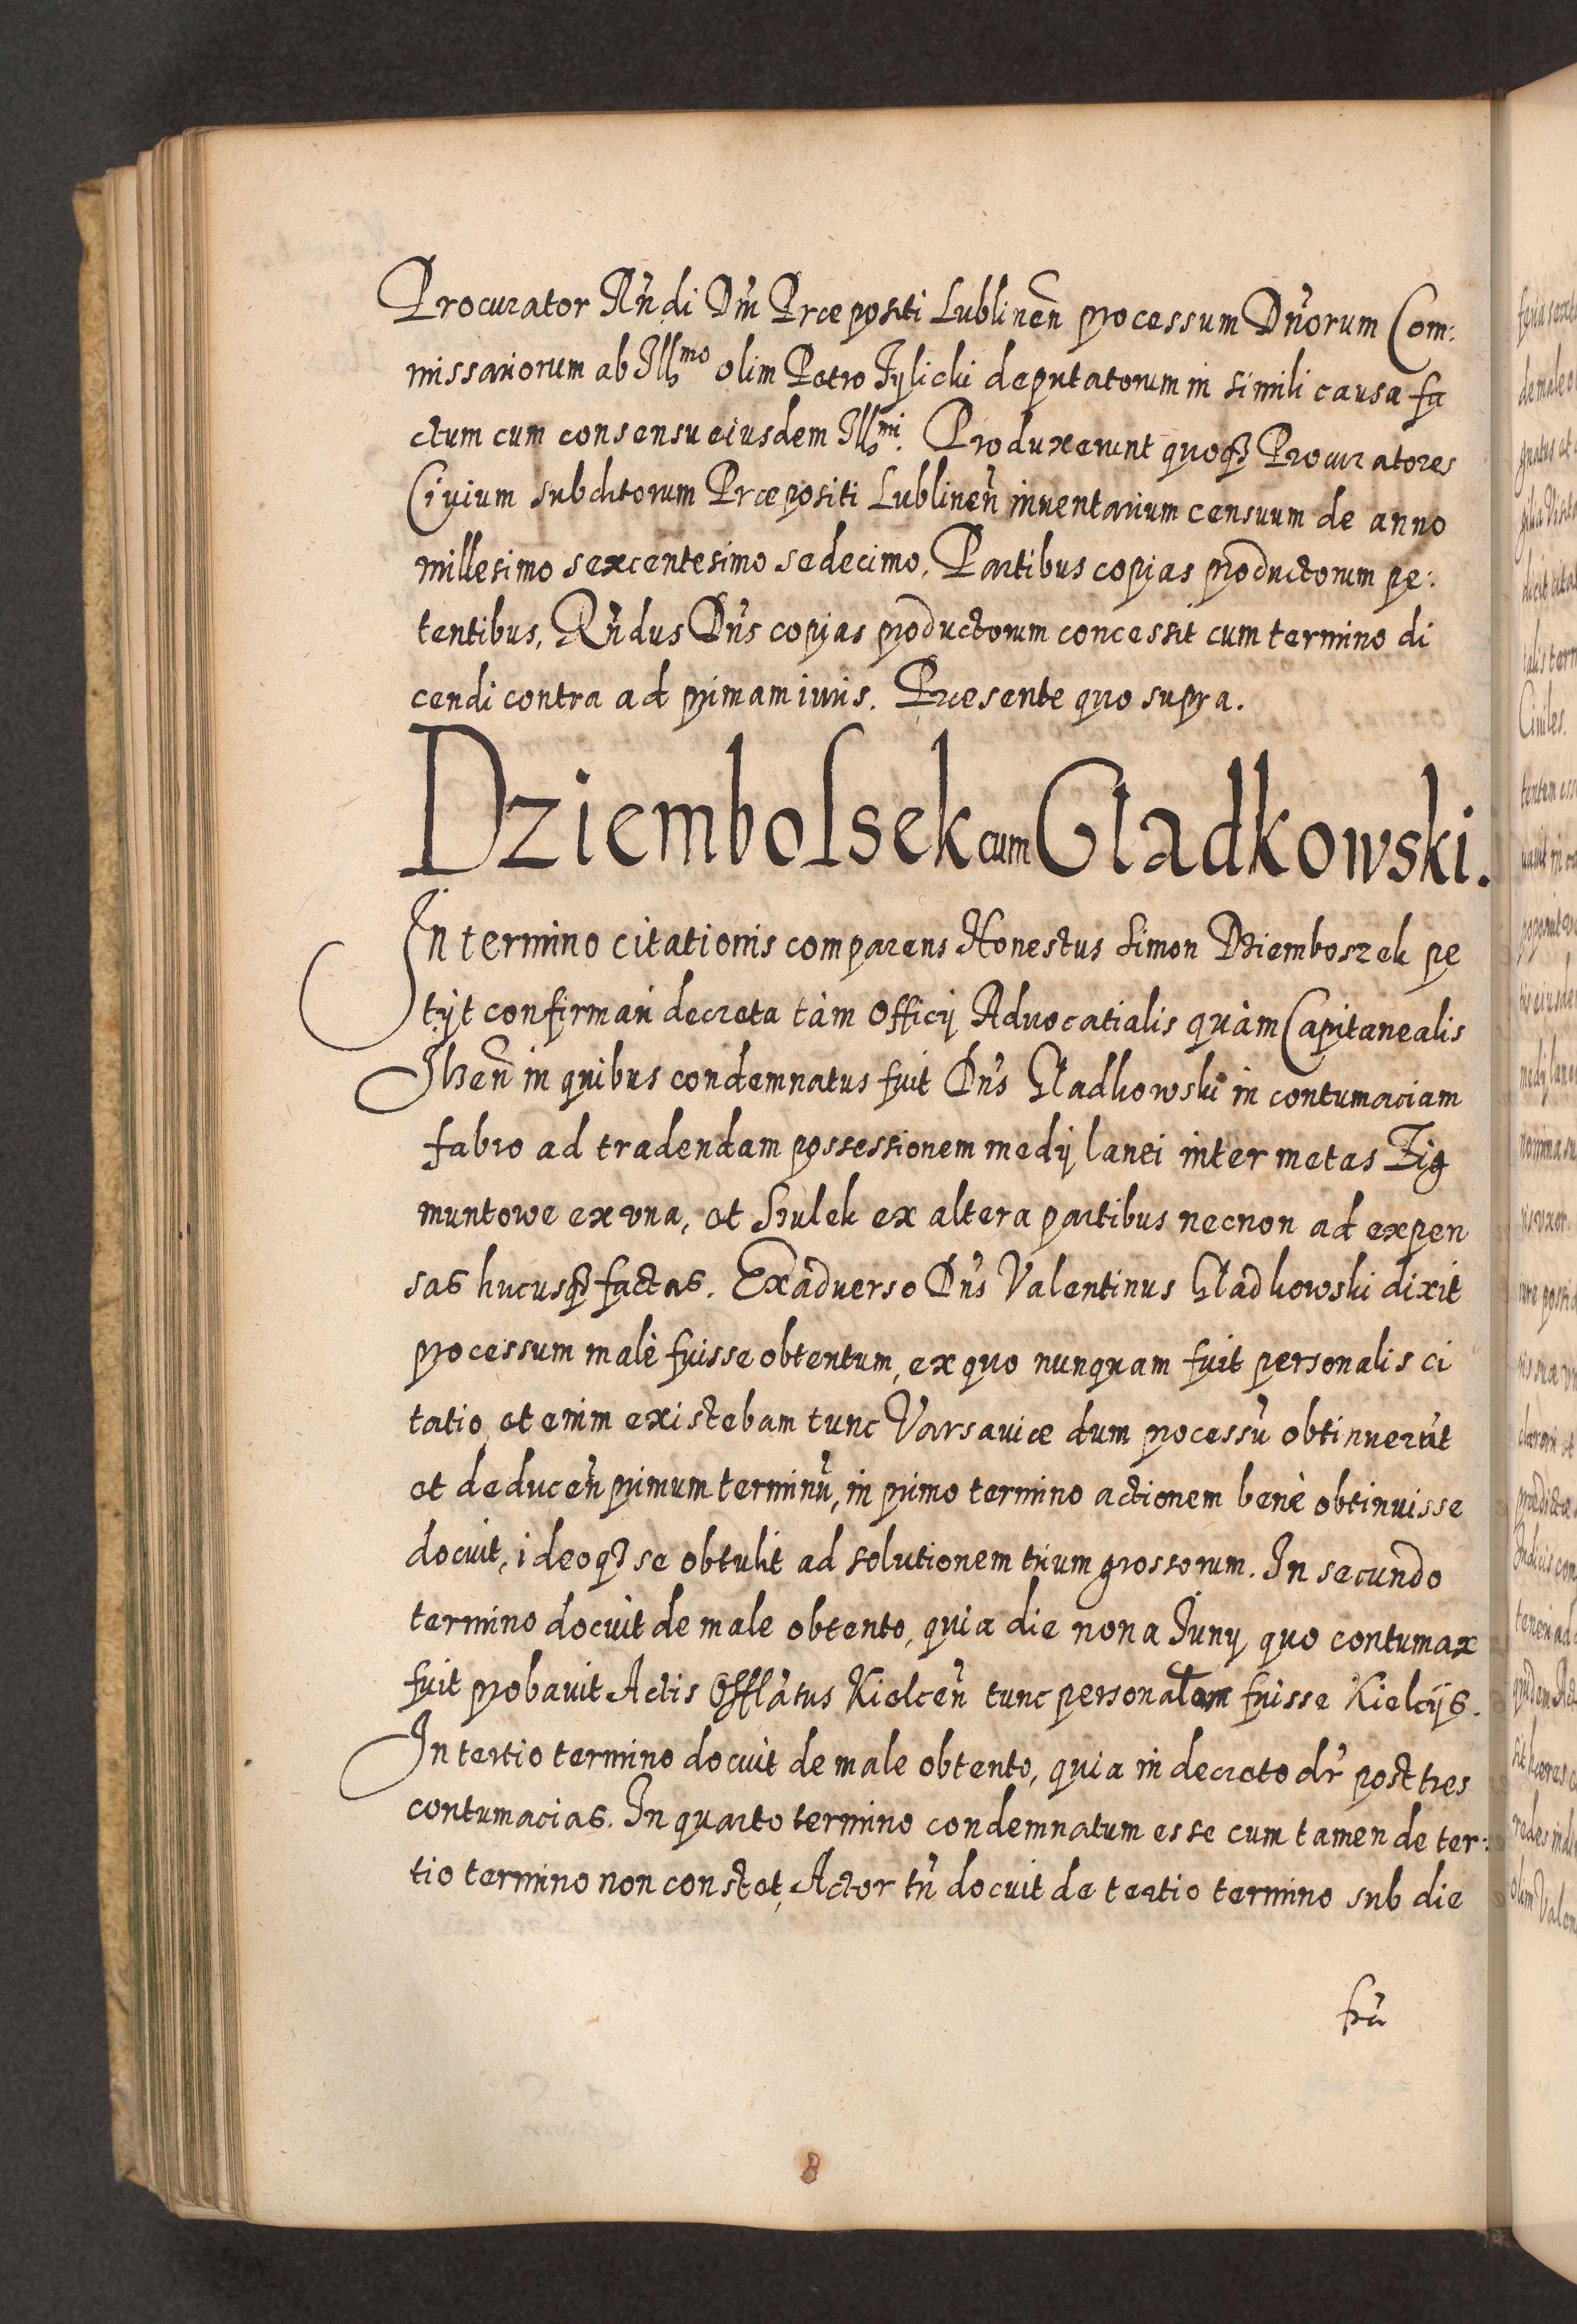 Procurator Rñdi Dñi Præpositi Lublineñ processum Dñorum Com:
missariorum ab Illmo olim Petro Tylicki deputatorum in simili causa fa
ctum cum consensu eiusdem Illmi. Produxerunt quoq3 Procuratores
Ciuium subditorum Præpositi Lublineñ inuentarium censuum de anno
millesimo sexcentesimo sedecimo, Partibus copias productorum pe:
tentibus, Rñdus Dñs copias productorum concessit cum termino di
cendi contra ad primam iuris. Præsente quo supra.
Dziembolsek cum Gładkowski.
In termino citationis comparens Honestus Simon Dziemboszek pe
tÿt confirmari decreta tàm Officÿ Aduocatialis quàm Capitanealis
Ilzeñ in quibus condemnatus fuit Dñs Gładkowski in contumaciam
fabro ad tradendam possessionem medÿ lanei inter metas Zig
muntowe ex vna, et Szulek ex altera partibus necnon ad expen
sas hucusq3 factas. Exaduerso Dñs Valentinus Gładkowski dixit
processum malè fuisse obtentum, ex quo nunquam fuit personalis ci
tatio, et enim existebam tunc Varsauiæ dum processũ obtinuerũt
et deduceñ primum terminũ, in primo termino actionem benè obtinuisse
docuit, ideoq3 se obtulit ad solutionem trium grossorum. In secundo
termino docuit de male obtento, quia die nona Junÿ quo contumax
fuit probauit Actis Offlatus Kielceñ tunc personalem fuisse Kielcÿs.
In tertio termino docuit de male obtento, quia in decreto dr̃ post tres
contumacias. In quarto termino condemnatum esse cum tamen de ter:
tio termino non constet, Actor tñ docuit de tertio termino sub die